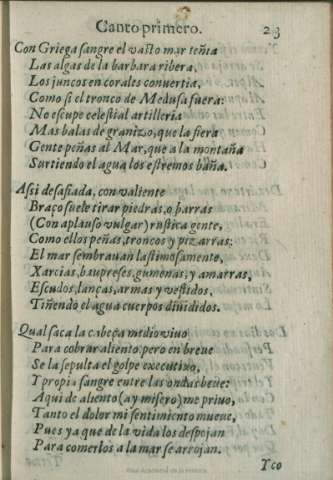 Canto primero. 23
Con Griega sangre el vasto mar teñia
Las algas de la barbara ribera,
Los juncos en corales conuertia,
Como si el tronco de Medusa fuera:
No escupe celestial artilleria
Mas balas de granizo, que la fiera
Gente peñas al Mar, que a la montaña
Surtiendo el agua los estremos baña.
Assi desafiada, con valiente
Braço suele tirar piedras, o barras
(Con aplauso vulgar) rustica gente,
Como ellos peñas, troncos y pizarras:
El mar sembrauan lastimosamente,
Xarcias, baupreses, gumenas, y amarras,
Escudos, lanças, armas y vestidos,
Tiñendo el agua cuerpos diuididos.
Qual saca la cabeça medio viuo
Para cobrar aliento, pero en breue
Se la sepulta el golpe executiuo,
Y propia sangre entre las ondas beue:
Aqui de aliento (ay misero) me priuo,
Tanto el dolor mi sentimiento mueue,
Pues ya que de la vida los despojan
Para comerlos a la mar se arrojan.
Yco
Real Academia de la Historia